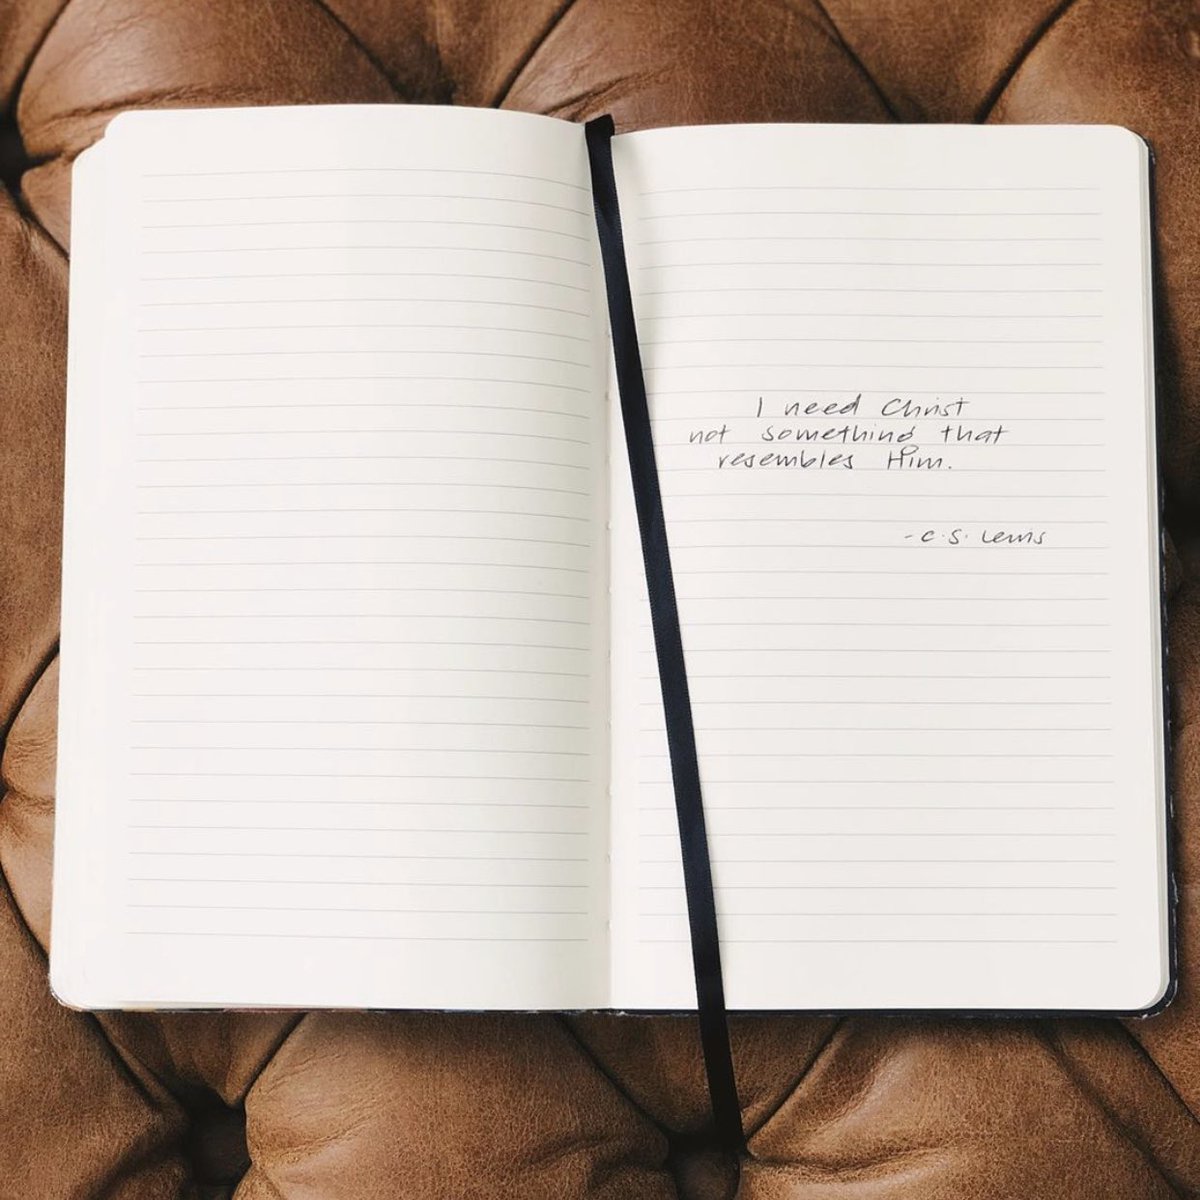 I need Christ
not something that
resembles Him.
- C.S. Lewis